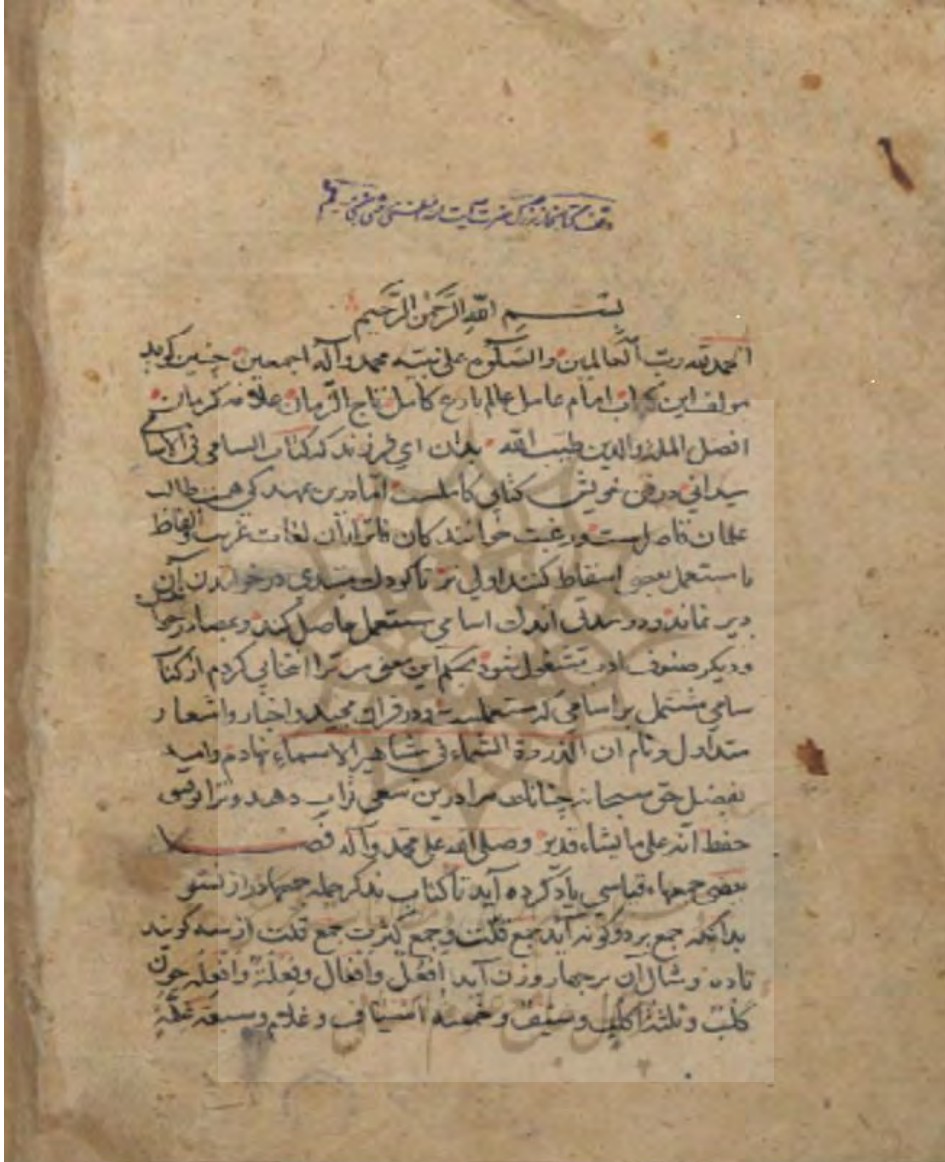 بسم الله الرحمن الرحيم
الحمد لله رب العالمين والسلوم علی نبیه محمد وآله اجمعین چنین کوید
مولف این کتاب امام عامل عالم بارع کامل تاج الزمان علامه کرمان
افضل المله والدین طیب الله بدان ای فرزند که کتاب السامی فی الاسامی
میدانی در فن خویش کتابی کاملست اما درین عهد کی طالب
علمان فاصل و رغبت خوانند کان فاتر از آن لغات غریب والفاظ
نا مستعمل بعضی اسقاط کنند اولی تر تا کودک مبتدی در خواندن آن
دیر نماند و در مدتی اندک اسامی مستعمل حاصل کند و بمصادر
ودیکر صنوف ادب مشغول شود بحکم این معنی مر ترا انتخابی کردم از کتاب
سامی مشتمل بر اسامی که مستعملست و در قران مجید واخبار واشعار
متداول ونام ان الذروة الشماء فی مشاهیر الاسماء نهادم وامید
بفضل حق سبحانه چنانک مرا درین سعی ثواب دهد وترا توفیق
حفظ انه علی ما یشاء قدیر وصلی الله علی محمد وآله فصـــل
بعضی جمعهاء قیاسی یاد کرده آید تا کتاب بذکر جمله جمعها دراز نشو
بدانکه جمع بر دو کونه آید جمع قلت وجمع کثرت جمع قلت از سه کویند
تا ده ومثال آن بر چهار وزن آید افعل وافعال وفعلة وافعلة چون
کلب وثلثة اکلب وسیف وخمسة اسیاف وغلام وسبعة غلمة